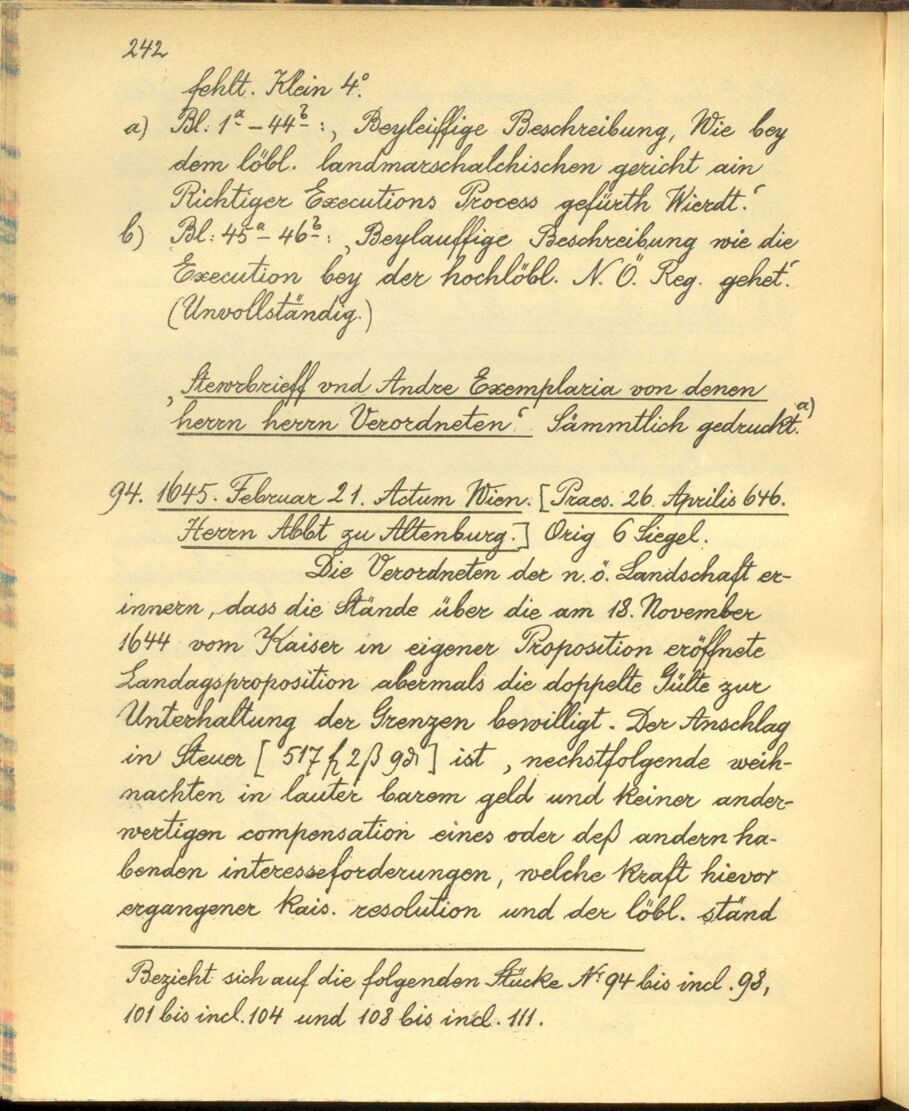 242
fehlt. Klein 4°.
a) Bl. 1ª – 44ᵇ : ‚ Beyleiffige Beschreibung, Wie bey
dem löbl. landmarschalchischen gericht ain
Richtiger Executions Process gefürth Wierdt.‘
b) Bl: 45ª – 46ᵇ : ‚Beylauffige Beschreibung wie die
Execution bey der hochlöbl. N. Ö. Reg. gehet‘.
(Unvollständig.)
‚Stewrbrieff vnd Andre Exemplaria von denen
herrn herrn Verordneten‘ Sämmtlich gedruckt.ª⁾
94. 1645. Februar 21. Actum Wien. [Praes. 26 Aprilis 646.
Herrn Abbt zu Altenburg.] Orig 6 Siegel.
Die Verordneten der n. ö. Landschaft er-
innern, dass die Stände über die am 18. November
1644 vom Kaiser in eigener Proposition eröffnete
Landagsproposition abermals die doppelte Gülte zur
Unterhaltung der Grenzen bewilligt. Der Anschlag
in Steuer [517 fl 2 β 9 ₰] ist ‚ nechstfolgende weih-
nachten in lauter barem geld und keiner ander-
wertigen compensation eines oder deß andern ha-
benden interesseforderungen, welche kraft hievor
ergangener kais. resolution und der löbl. ständ
Bezieht sich auf die folgenden Stücke Nr 94 bis incl. 98,
101 bis incl. 104 und 108 bis incl. 111.